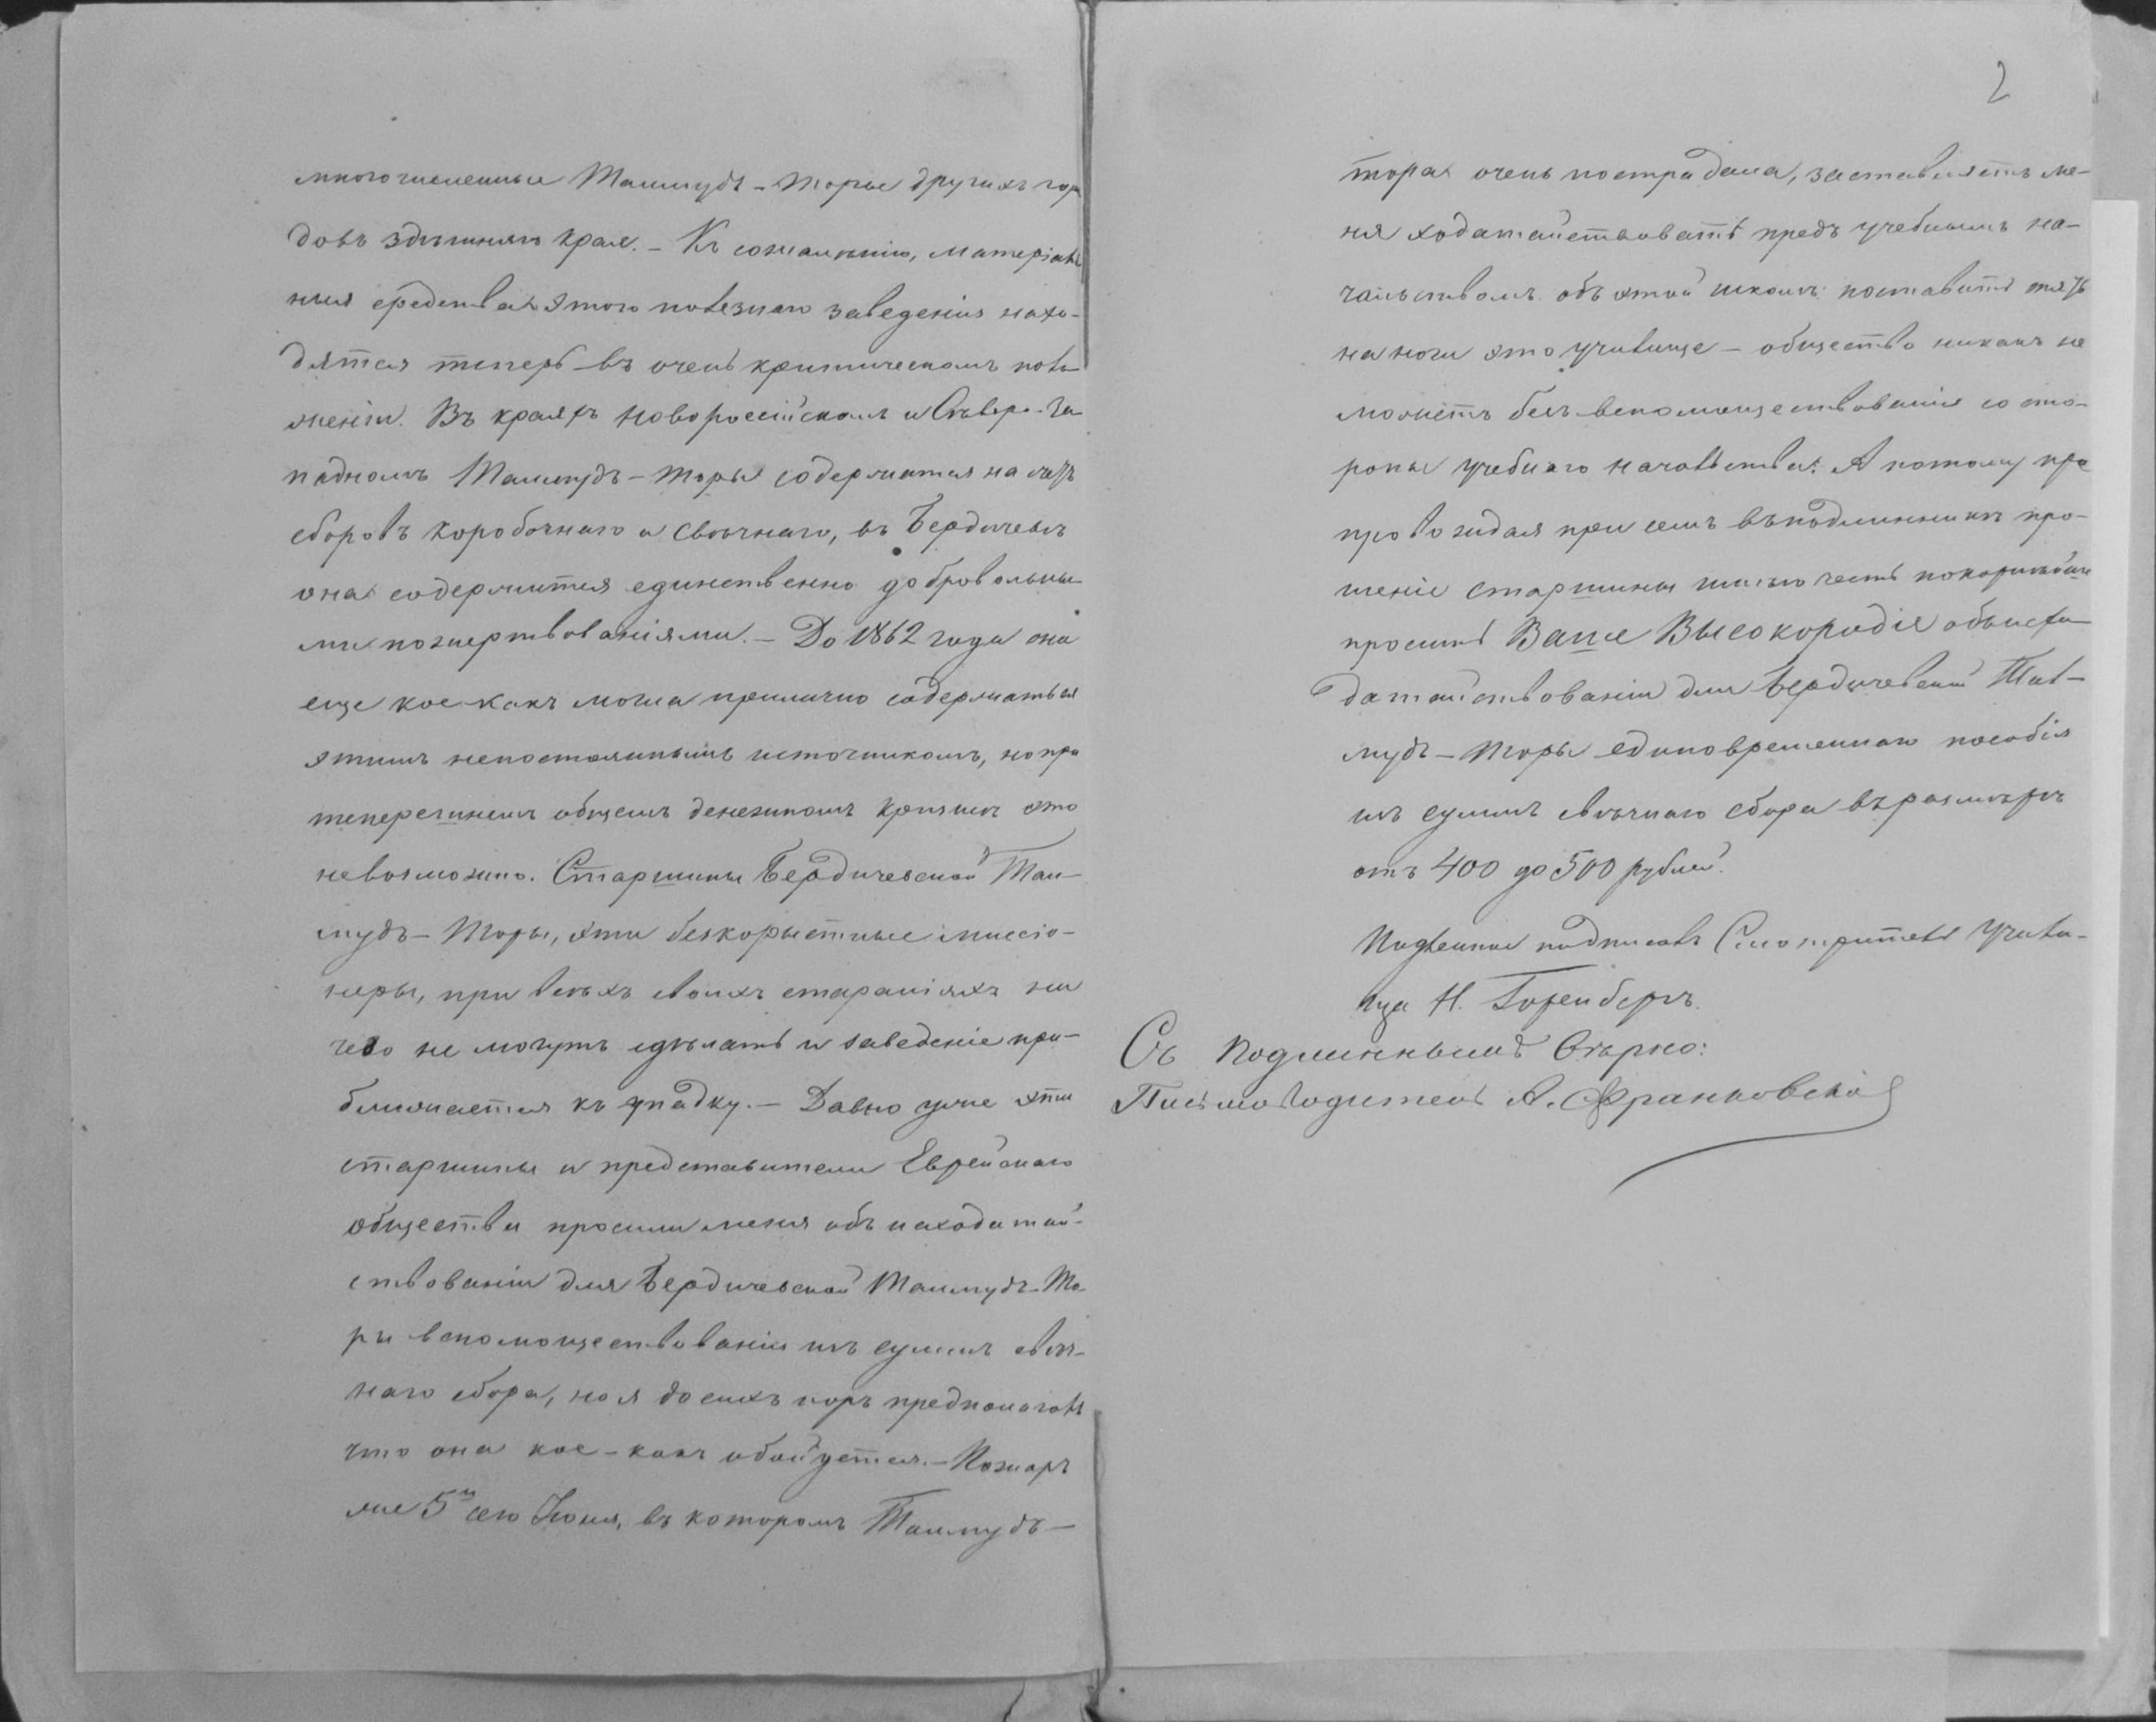 многочисленные Талмудъ-торы другихъ горо
довъ здѣшняго края. – Къ сожалѣнію, матеріаль
ныя средства этого полезнаго заведенія нахо-
дятся теперь въ очень критическомъ поло-
женіи. Въ краяхъ Новороссійскомъ и Сѣверо-За
падномъ Талмудъ-торы содержатся на счетъ
сборовъ коробочнаго и свѣчнаго, въ Бердичевѣ
она содержится единственно добровольны-
ми пожертвованіями. – До 1862 года она
еще кое-какъ могла прилично содержаться
этимъ непостояннымъ источникомъ, но при
теперешнемъ общемъ денежномъ кризисѣ это
невозможно. Старшины Бердичевской Тал-
мудъ-Торы, эти безкорыстные миссіо-
неры, при всѣхъ своихъ стараніяхъ ни
чего не могутъ сдѣлать и заведеніе при-
ближается къ упадку. – Давно уже эти
старшины и представители Еврейскаго
общества просили меня объ исходатай-
ствованіи для Бердичевской Талмудъ-То-
ры вспомоществованія изъ суммъ свѣч-
наго сбора, но я до сихъ поръ предполагалъ
что она кое-какъ обойдется. – Пожаръ
же 5го сего Іюня, въ которомъ Талмудъ –
2
тора очень пострадала, заставляетъ ме-
ня ходатайствовать предъ учебнымъ на-
чальствомъ объ этой школѣ: поставить опять
на ноги это училище – общество никакъ не
можетъ безъ вспомоществованія со сто-
роны учебнаго начальства. А потому пре
провождая при семъ въ подлинникѣ про-
шеніе старшины имѣю честь покорнѣйше
просить Ваше Высокородіе объ исхо-
датайствованіи для Бердичевской Тал-
мудъ-Торы единовременнаго пособія
изъ суммъ свѣчнаго сбора въ размѣрѣ
отъ 400 до 500 рублей.
Подлинное подписалъ Смотритель Учили-
ща Н. Горенбергъ.
Съ подлиннымъ вѣрно:
Письмоводитель А. Франковскій